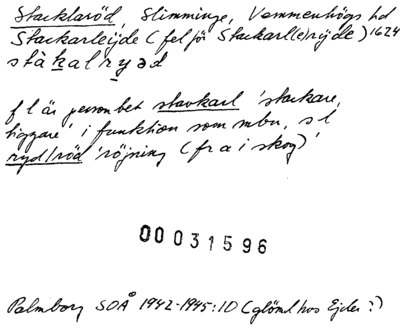 Stacklaröd, Slimminge, Vemmenhögs hd
Stackarleijde (fel för Stackarl(e)rijde) 1624
stàkalryəd
f l är personbet stavkarl 'stackare,
tiggare' i funktion som mbn, s l
ryd/röd 'röjning (fr a i skog)'
00031596
Palmborg SOÅ 1942-1945:10 (glömt hos Ejder?)